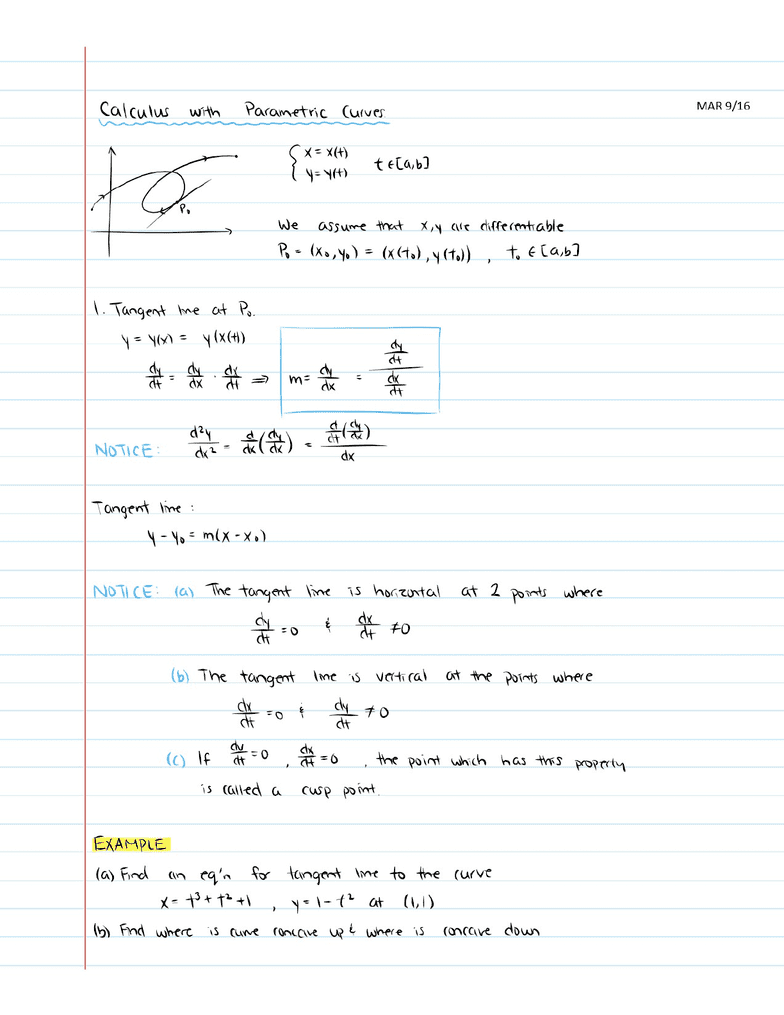 Calculus with Parametric Curves
MAR 9/16
{ x = x(t)
y = y(t) t ∈ [a,b]
P₀
We assume that x,y are differentiable
P₀ = (x₀, y₀) = (x(t₀), y(t₀)) , t₀ ∈ [a,b]
1. Tangent line at P₀.
y = y(x) = y(x(t))
dy/dt = dy/dx · dx/dt ⇒ m = dy/dx = (dy/dt)/(dx/dt)
NOTICE: d²y/dx² = d/dx (dy/dx) = (d/dt (dy/dx))/dx
Tangent line :
y - y₀ = m(x - x₀)
NOTICE: (a) The tangent line is horizontal at 2 points where
dy/dt = 0 & dx/dt ≠ 0
(b) The tangent line is vertical at the points where
dx/dt = 0 & dy/dt ≠ 0
(c) If dy/dt = 0 , dx/dt = 0 , the point which has this property
is called a cusp point.
EXAMPLE
(a) Find an eq'n for tangent line to the curve
x = t³ + t² + 1 , y = 1 - t² at (1,1)
(b) Find where is curve concave up & where is concave down